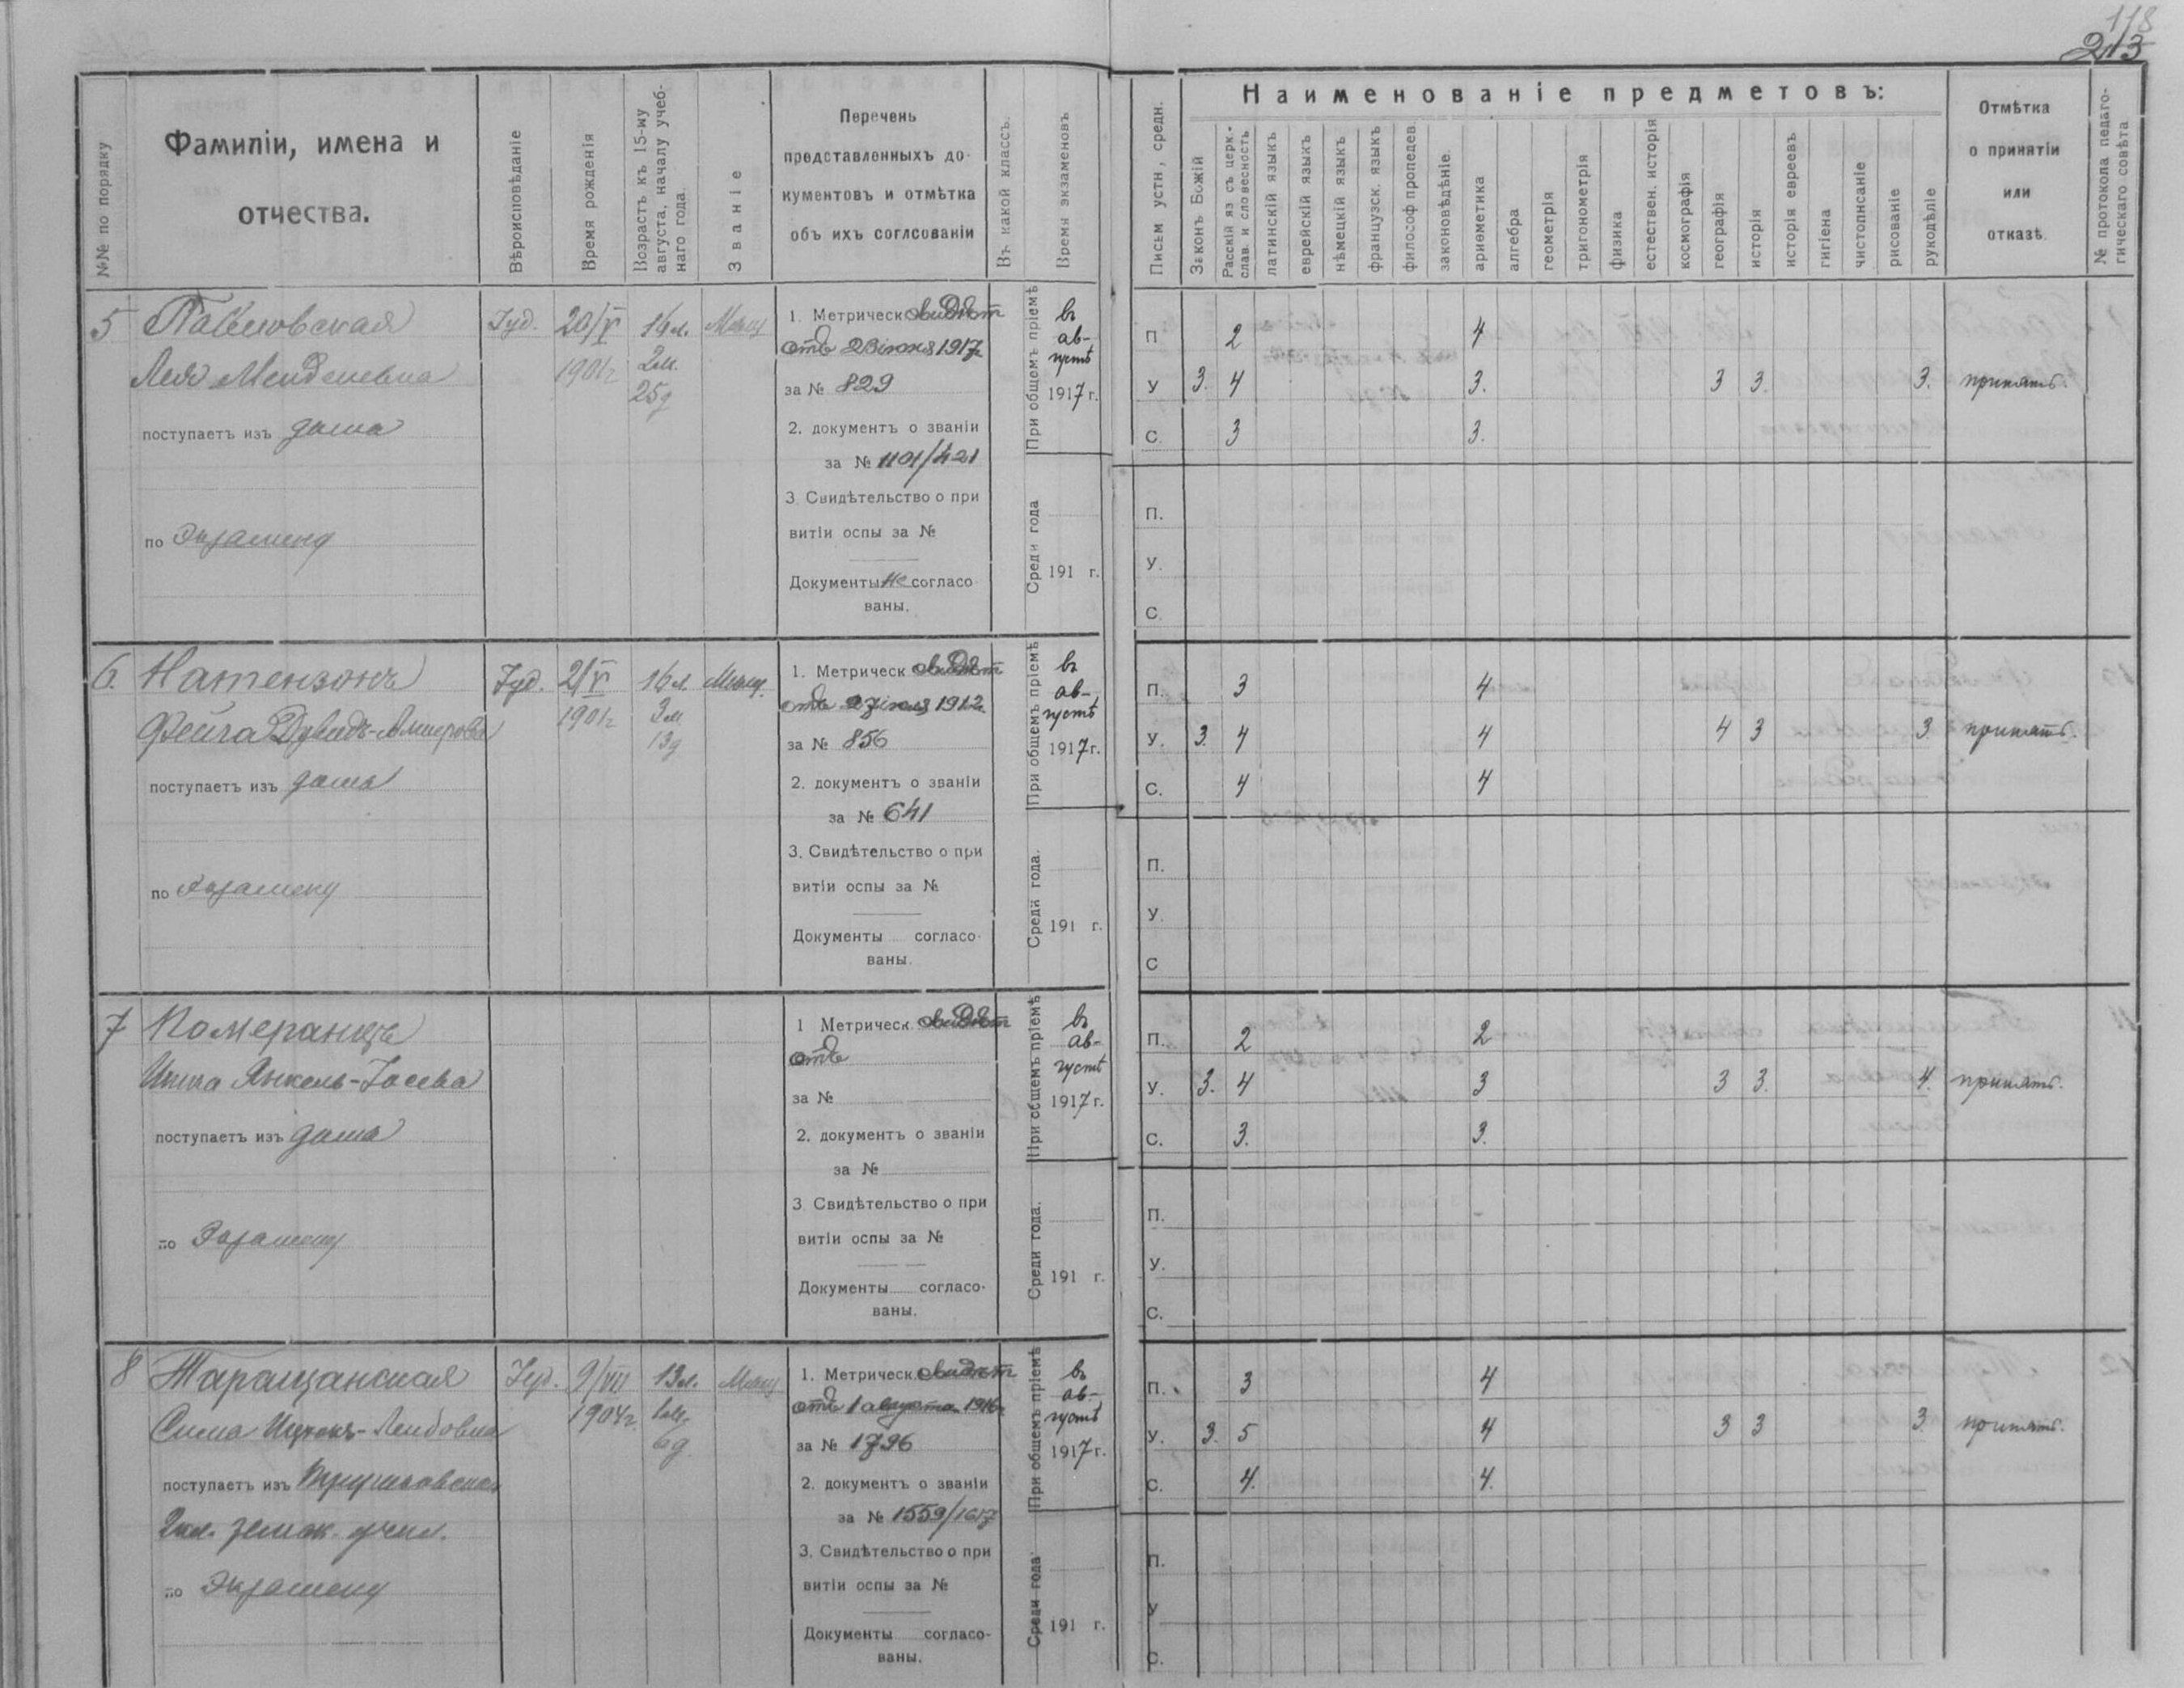 118
213
№№ по порядку
Фамиліи, имена и
отчества.
Вѣроисповѣданіе
Время рожденія
Возрастъ къ 15-му
августа, началу учеб-
наго года.
Званіе
Перечень
представленныхъ до-
кументовъ и отмѣтка
объ ихъ соглсованіи
Въ какой классъ.
Время экзаменовъ
Письм устн, средн.
Наименованіе предметовъ:
Законъ Божій
Расскій яз съ церк.-
слав. и словесность
латинскій языкъ
еврейскій языкъ
нѣмецкій языкъ
французск. языкъ
философ пропедев.
законовѣдѣніе.
ариѳметика
алгебра
геометрія
тригонометрія
физика
естествен. исторія
космографія
географія
исторія
исторія евреевъ
гигіена
чистописаніе
рисованіе
рукодѣліе
Отмѣтка
о принятіи
или
отказѣ.
№ протокола педаго-
гическаго совѣта
5
Лея Менделевна
поступаетъ изъ дома
по Экзамену
Іуд.
20/V
1901г
16л.
2м.
25д
Мѣщ
1. Метрическ. свидѣт
отъ 23 іюня 1917г
за № 829
2. документъ о званіи
за № 1101/421
3. Свидѣтельство о при
витіи оспы за №
Документы не согласо
ваны.
При общемъ пріемѣ
въ
ав-
густѣ
1917 г.
Среди года
191 г.
П 2 4
У 3. 4 3. 3 3. 3. принять.
С. 3 3.
П.
У.
С.
6.
Натензонъ
Фейга Дувидъ-
поступаетъ изъ дома
по Экзамену
Іуд.
2/V
1901г
16л.
3м
13д
Мѣщ.
1. Метрическ свидѣт
за № 856
2. документъ о званіи
за № 641
3. Свидѣтельство о при
витіи оспы за №
Документы согласо-
ваны.
При общемъ пріемѣ
въ
ав-
густѣ
1917 г.
Среди года.
191 г.
П. 3 4
У. 3. 4 4 4 3 3 принять.
С. 4 4
П.
У.
С
7
Померанцъ
Янкель-Іосева
поступаетъ изъ дома
по Экзамену
1 Метрическ. свидѣт
отъ
за №
2. документъ о званіи
за №
3 Свидѣтельство о при
витіи оспы за №
Документы согласо-
ваны.
При общемъ пріемѣ
въ
ав-
густѣ
1917 г.
Среди года.
191 г.
П. 2 2
У. 3. 4 3 3 3. 4. принять.
С. 3. 3.
П. -
У.
С.
8
Таращанская
Сима Ицекъ-Лейбовна
поступаетъ изъ
2кл. земск. учил.
по Экзамену
Іуд.
9/VII
1904г.
13л.
1м.
6д
Мѣщ
1. Метрическ. свидѣт
отъ 1 августа 1916г
за № 1796
2. документъ о званіи
за № 1559/1617
3. Свидѣтельство о при
витіи оспы за №
Документы согласо-
ваны.
При общемъ пріемѣ
въ
ав-
густѣ
1917 г.
Среди года.
191 г.
П. 3 4
У. 3. 5 4 3 3 3 принять.
С. 4. 4.
П.
У
С.